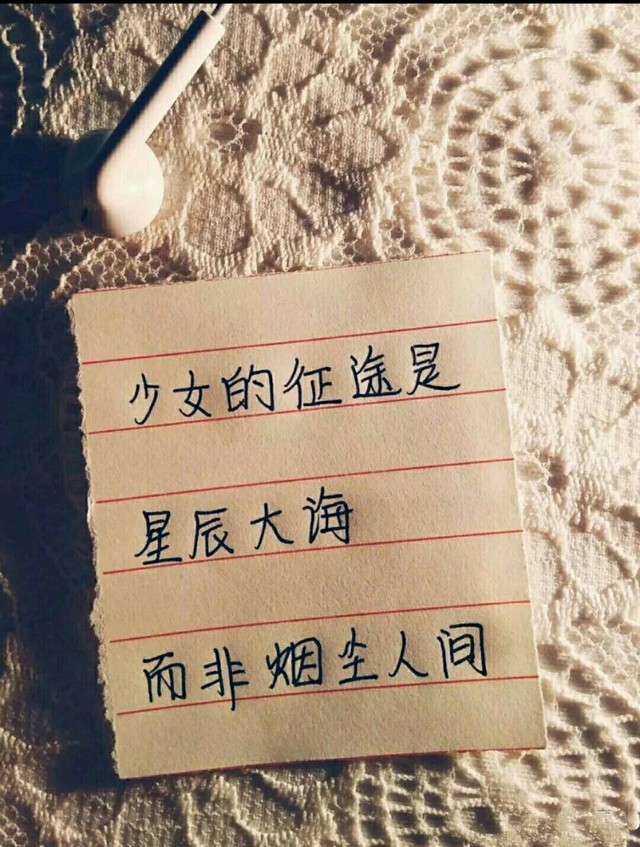 少女的征途是
星辰大海
而非烟尘人间